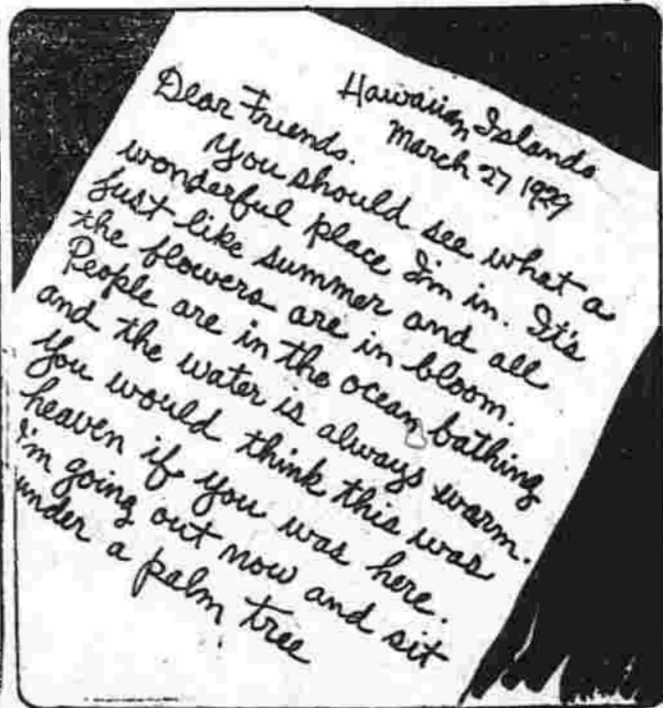 Hawaiian Islands
March 27 1929
Dear Friends.
You should see what a
wonderful place I'm in. It's
Just like summer and all
the flowers are in bloom.
People are in the ocean bathing
and the water is always warm.
You would think this was
heaven if you was here.
I'm going out now and sit
under a palm tree